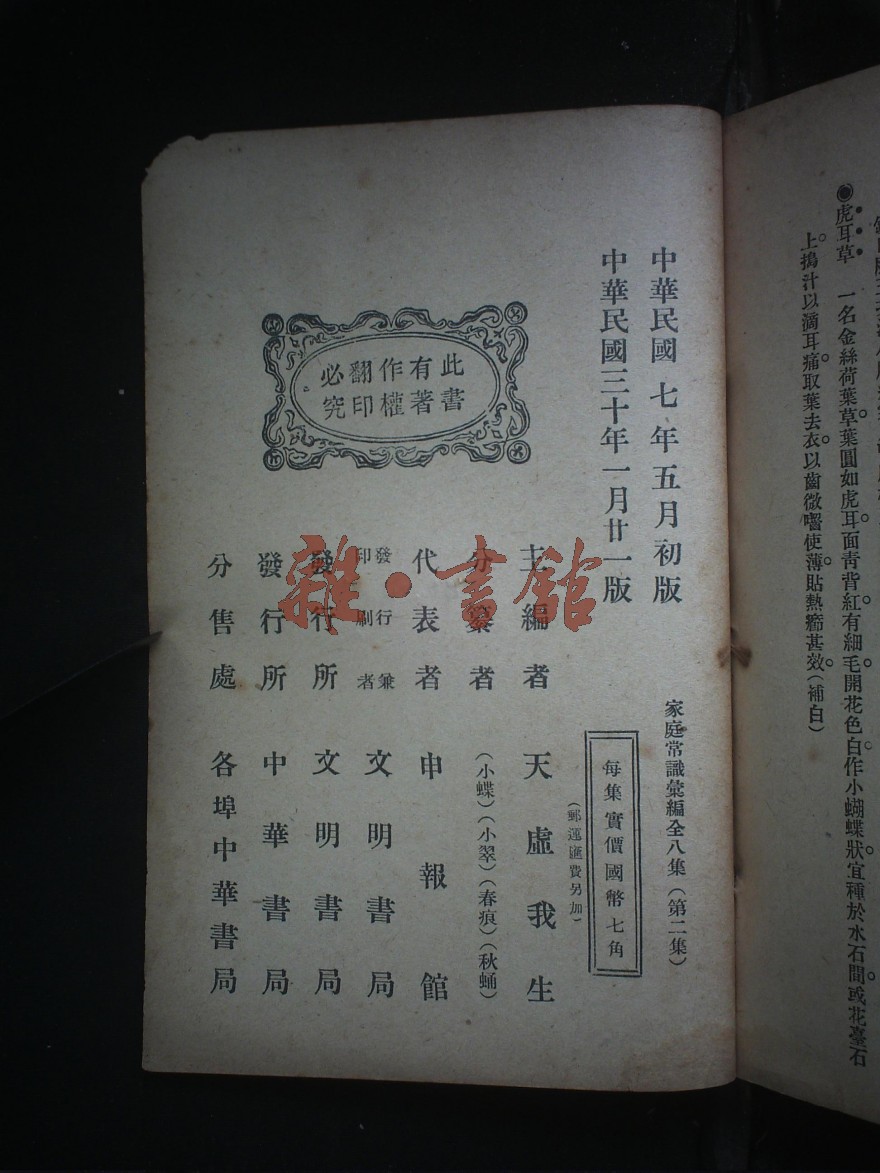 ●虎耳草　一名金絲荷葉草葉圓如虎耳面靑背紅有細毛開花色白作小蝴蝶狀宜種於水石間或花臺石
上搗汁以滴耳痛取葉去衣以齒微嚼使薄貼熱癤甚效(補白)
中華民國七年五月初版
中華民國三十年一月廿一版
家庭常識彙編全八集(第二集)
每集實價國幣七角
(郵運匯費另加)
此書
有著
作權
翻印
必究
主編者　天虛我生
分纂者　(小蝶)(小翠)(春痕)(秋蛹)
代表者　申報館
發行兼
印刷者　文明書局
發行所　文明書局
發行所　中華書局
分售處　各埠中華書局
雜·書館